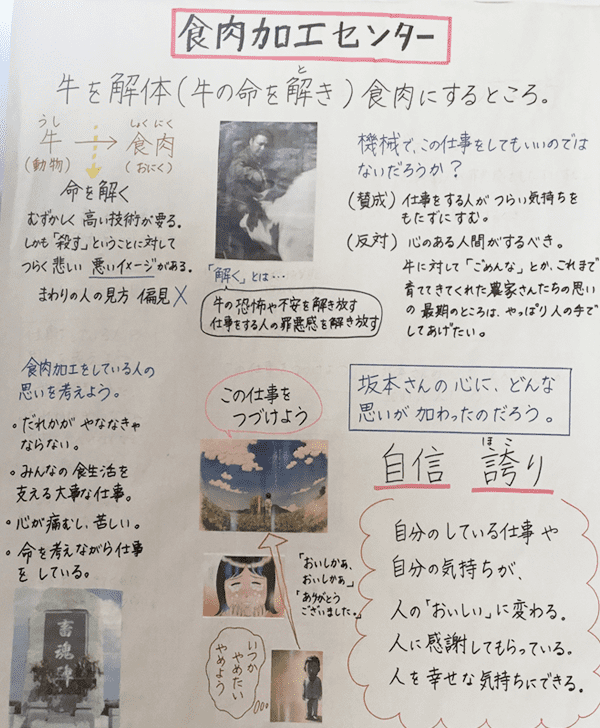 食肉加工センター
牛を解体(牛の命を解き)食肉にするところ。
と
うし しょくにく
牛 → 食肉
(動物) (おにく)
命を解く
むずかしく 高い技術が要る。
しかも「殺す」ということに対して
つらく悲しい 悪いイメージがある。
まわりの人の見方 偏見 X
「解く」とは…
牛の恐怖や不安を解き放す
仕事をする人の罪悪感を解き放す
機械で、この仕事をしてもいいのでは
ないだろうか?
(賛成) 仕事をする人が つらい気持ちを
もたずにすむ。
(反対) 心のある人間がするべき。
牛に対して「ごめんな」とか、これまで
育ててきてくれた農家さんたちの思い
の 最期のところは、やっぱり人の手で
してあげたい。
食肉加工をしている人の
思いを考えよう。
・だれかが やななきゃ
ならない。
・みんなの食生活を
支える大事な仕事。
・心が痛むし、苦しい。
・命を考えながら仕事
をしている。
畜魂碑
この仕事を
つづけよう
「おいしかぁ、
おいしかぁ」
「ありがとう
ございました。」
いつか
やめたい
やめよう
坂本さんの心に、どんな
思いが加わったのだろう。
ほこ
自信 誇り
自分のしている仕事や
自分の気持ちが、
人の「おいしい」に変わる。
人に感謝してもらっている。
人を幸せな気持ちにできる。